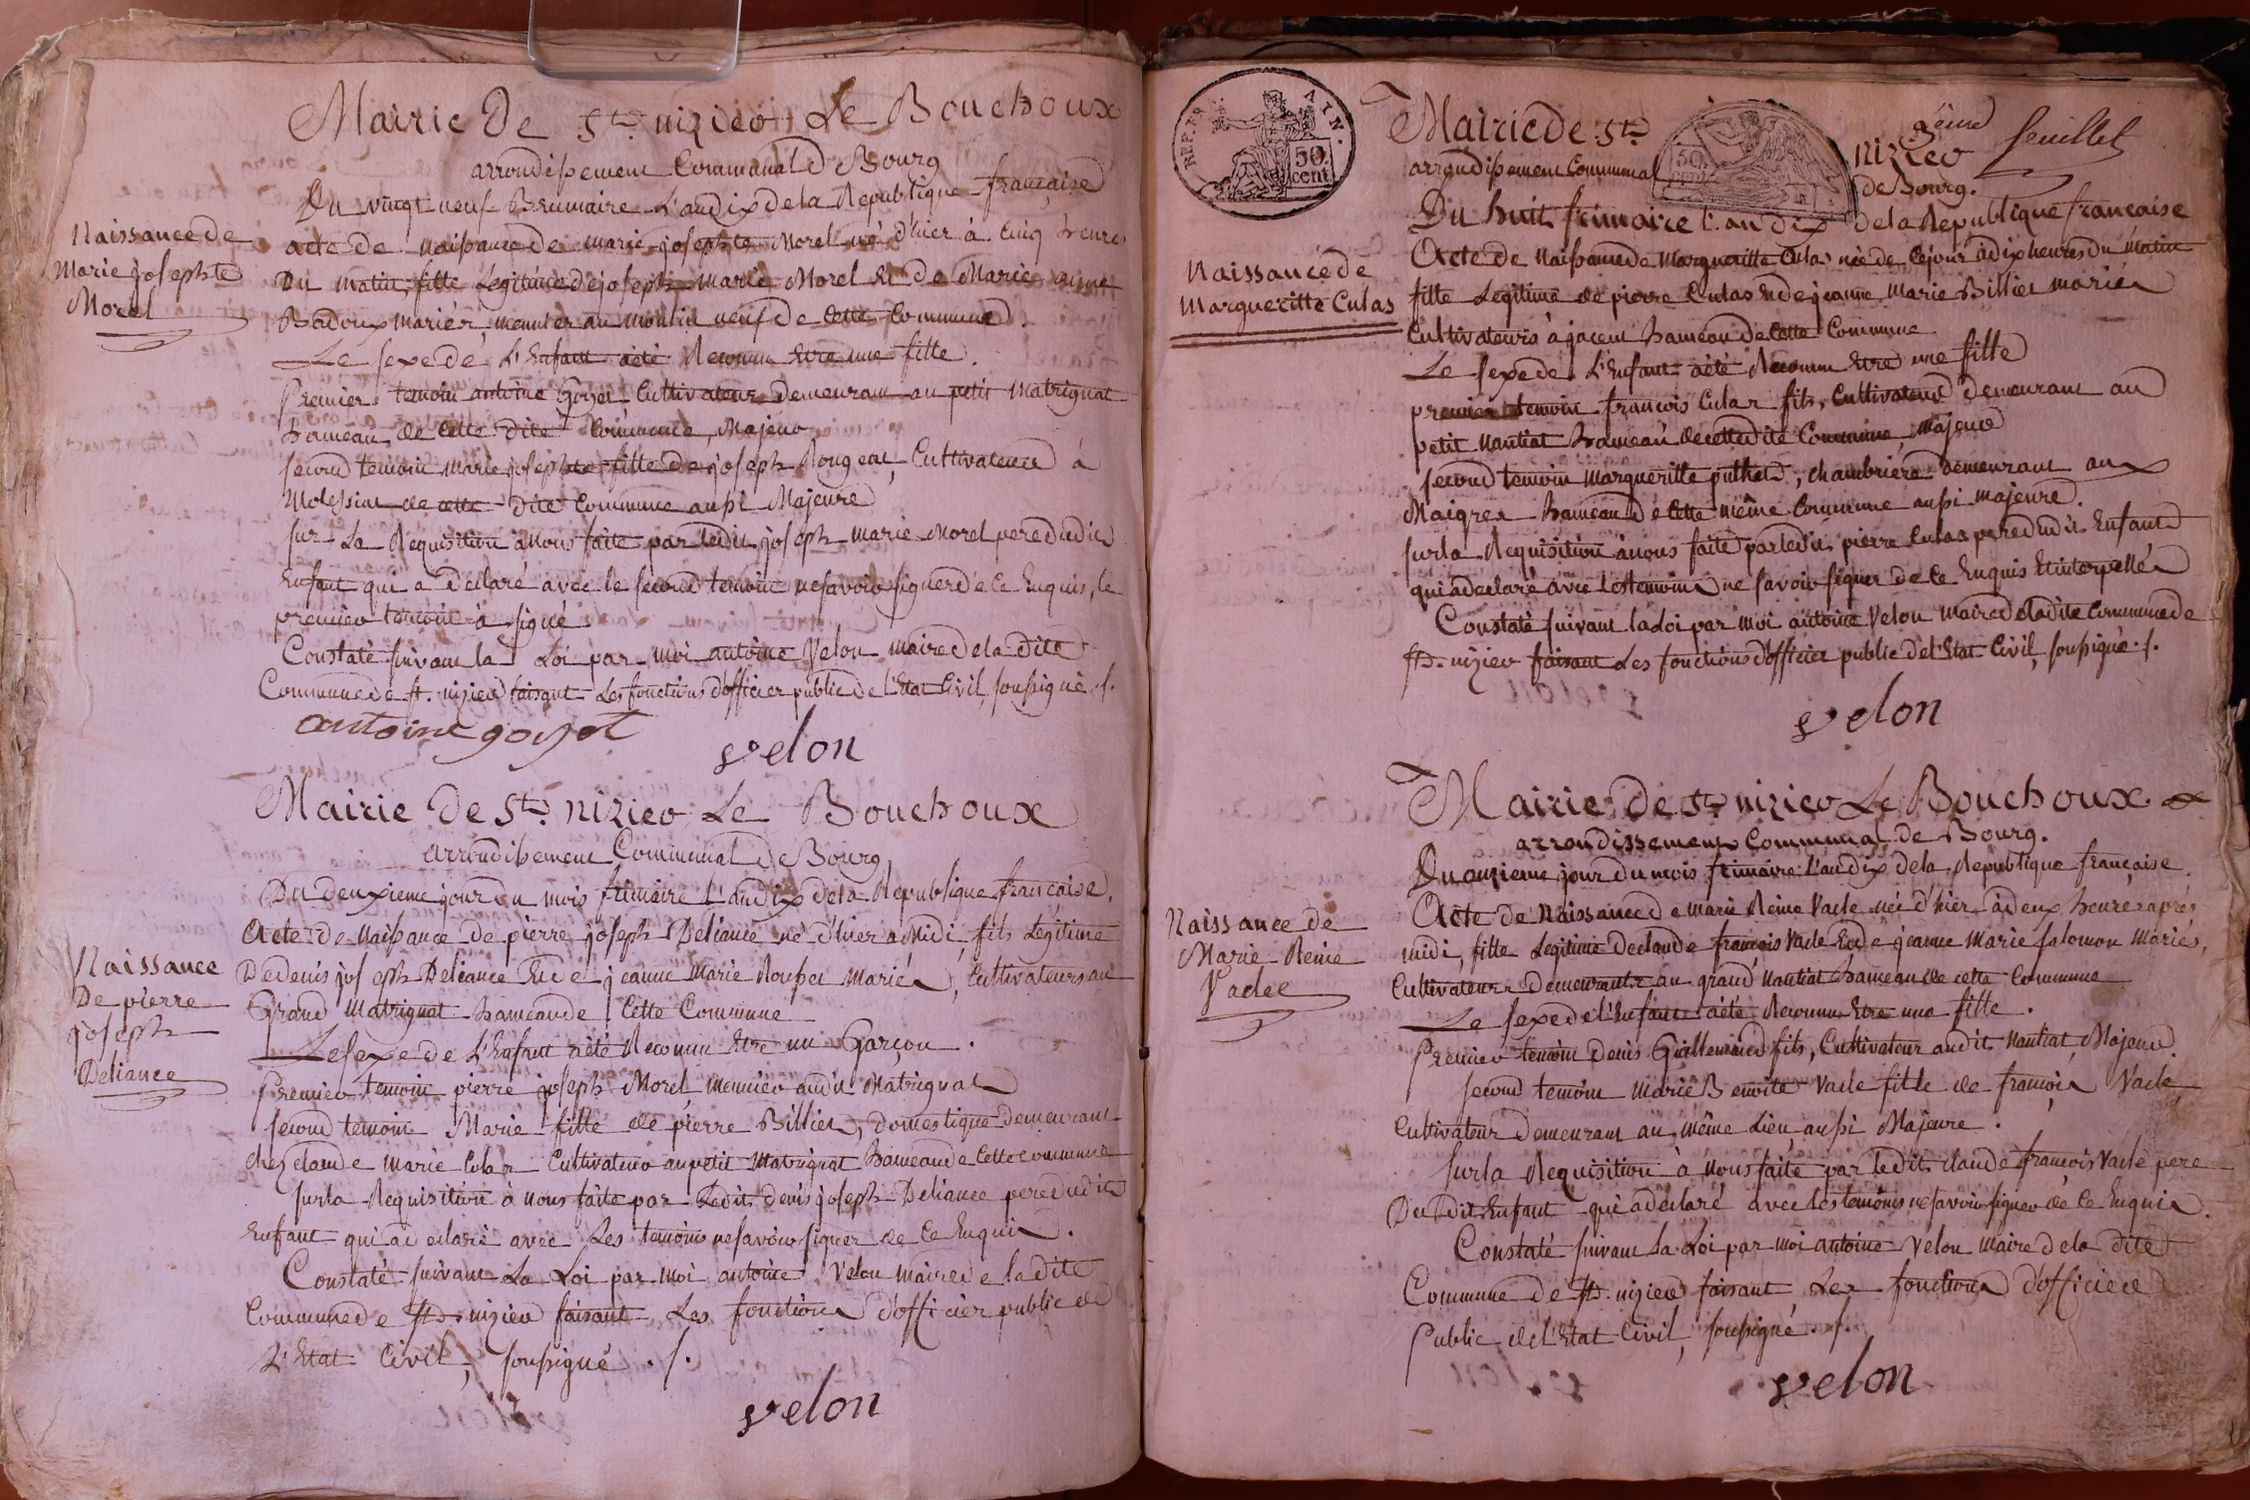 Mairie De St. nizieo Le Bouchoux
arrondissement Communal De Bourg
Du vingt neuf Brumaire L'an dix de la Republique française
Naissance de
Marie josephte
Morel
acte de naissance de marie josephte Morel né d'hier à Cinq heures
Du matin, fille Légitime de joseph marie Morel Et de Marie
Badoux mariés, meunier au moulin neuf de Cette Commune.
Le sexe de L'Enfant a été Reconnu Etre une fille.
Premier temoin antoine Goyot Cultivateur demeurant au petit Matrignat
hameau de Cette dite Commune, Majeur
second temoin marie josephte fille de joseph Rougeat, Cultivateur à
Molessiat de cette Dite Commune aussi Majeure
sur La Requisition à Nous faite par ledit joseph marie Morel pere dudit
Enfant qui a déclaré avec le second temoin ne savoir signer de Ce Enquis, le
premier temoin à signé
Constaté suivant la Loi par moi antoine Velon maire de la dite
Commune de st. nizier faisant Les fonctions d'officier public de l'Etat Civil, soussigné ./.
antoine goyot
velon
Mairie De St. nizieo Le Bouchoux
arrondissement Communal De Bourg
Du deuxieme jour du mois frimaire L'an dix de la Republique française,
Naissance
De pierre
joseph
Deliance
Acte de Naissance de pierre joseph Deliance né d'hier à Midi, fils Légitime
De denis joseph Deliance Et de jeanne Marie Rousset mariés, Cultivateurs au
Grand Matrignat hameau de Cette Commune
Le sexe de L'Enfant a été Reconnu Etre un Garçon.
Premier temoin pierre joseph Morel, meunier audit Matrignat
second temoin Marie fille de pierre Billiet, domestique demeurant
chez claude marie Culas Cultivateur au petit Matrignat hameau de Cette commune
sur la Requisition à nous faite par Ledit denis joseph Deliance pere dudit
Enfant qui a déclaré avec Les temoins ne savoir signer de Ce Enquis.
Constaté suivant La Loi par moi antoine Velon maire de la dite
Commune de st. nizier faisant Les fonctions d'officier public de
L'Etat Civil, soussigné ./.
velon
REP. FRA.
AIN.
50.
cent.
9ème feuillet
Mairie de St. nizieo
arrondissement Communal de Bourg.
Du huit frimaire l'an dix de la Republique francaise
Naissance de
Margueritte Culas
Acte de naissance de Margueritte Culas née de Cejour à dix heures du Matin
fille Legitime de pierre Culas Et de jeanne Marie Billiet mariés
Cultivateurs à jacent hameau de Cette Commune
Le sexe de L'Enfant a été Reconnu Etre une fille
premier temoin francois Culas fils, Cultivateur demeurant au
petit Nantiat hameau de cettedite Commune, Majeur
second temoin Margueritte puthet, chambriere demeurant aux
Maigres hameau de Cette même Commune aussi majeure.
sur la Requisition à nous faite par ledit pierre Culas pere dudit Enfant
qui a declaré avec Les temoins ne savoir signer de Ce Enquis Et interpellés
Constaté suivant la Loi par moi antoine Velon maire de ladite Commune de
st. nizier faisant Les fonctions d'officier public de l'Etat Civil, soussigné ./.
velon
Mairie de St. nizieo Le Bouchoux
arrondissement Communal de Bourg.
Du onzieme jour du mois frimaire L'an dix de la Republique française.
Naissance de
Marie Reine
Vacle
Acte de Naissance de marie Reine Vacle née d'hier à deux heures après
midi, fille Legitime de claude francois Vacle Et de jeanne Marie salomon Mariés,
Cultivateurs demeurants au grand Nantiat hameau de cette Commune
Le sexe de l'Enfant a été Reconnu Etre une fille.
Premier temoin denis Guillemin fils, Cultivateur audit Nantiat, Majeur.
second temoin Marie Benoite Vacle fille de francois Vacle,
Cultivateur demeurant au même Lieu, aussi Majeure.
sur la Requisition à Nous faite par ledit claude francois Vacle pere
Du dit Enfant qui a déclaré avec les temoins ne savoir signer de Ce Enquis.
Constaté suivant La Loi par moi antoine Velon maire de la dite
Commune de st. nizier faisant Les fonctions d'officier
Public de l'Etat Civil, soussigné ./.
velon